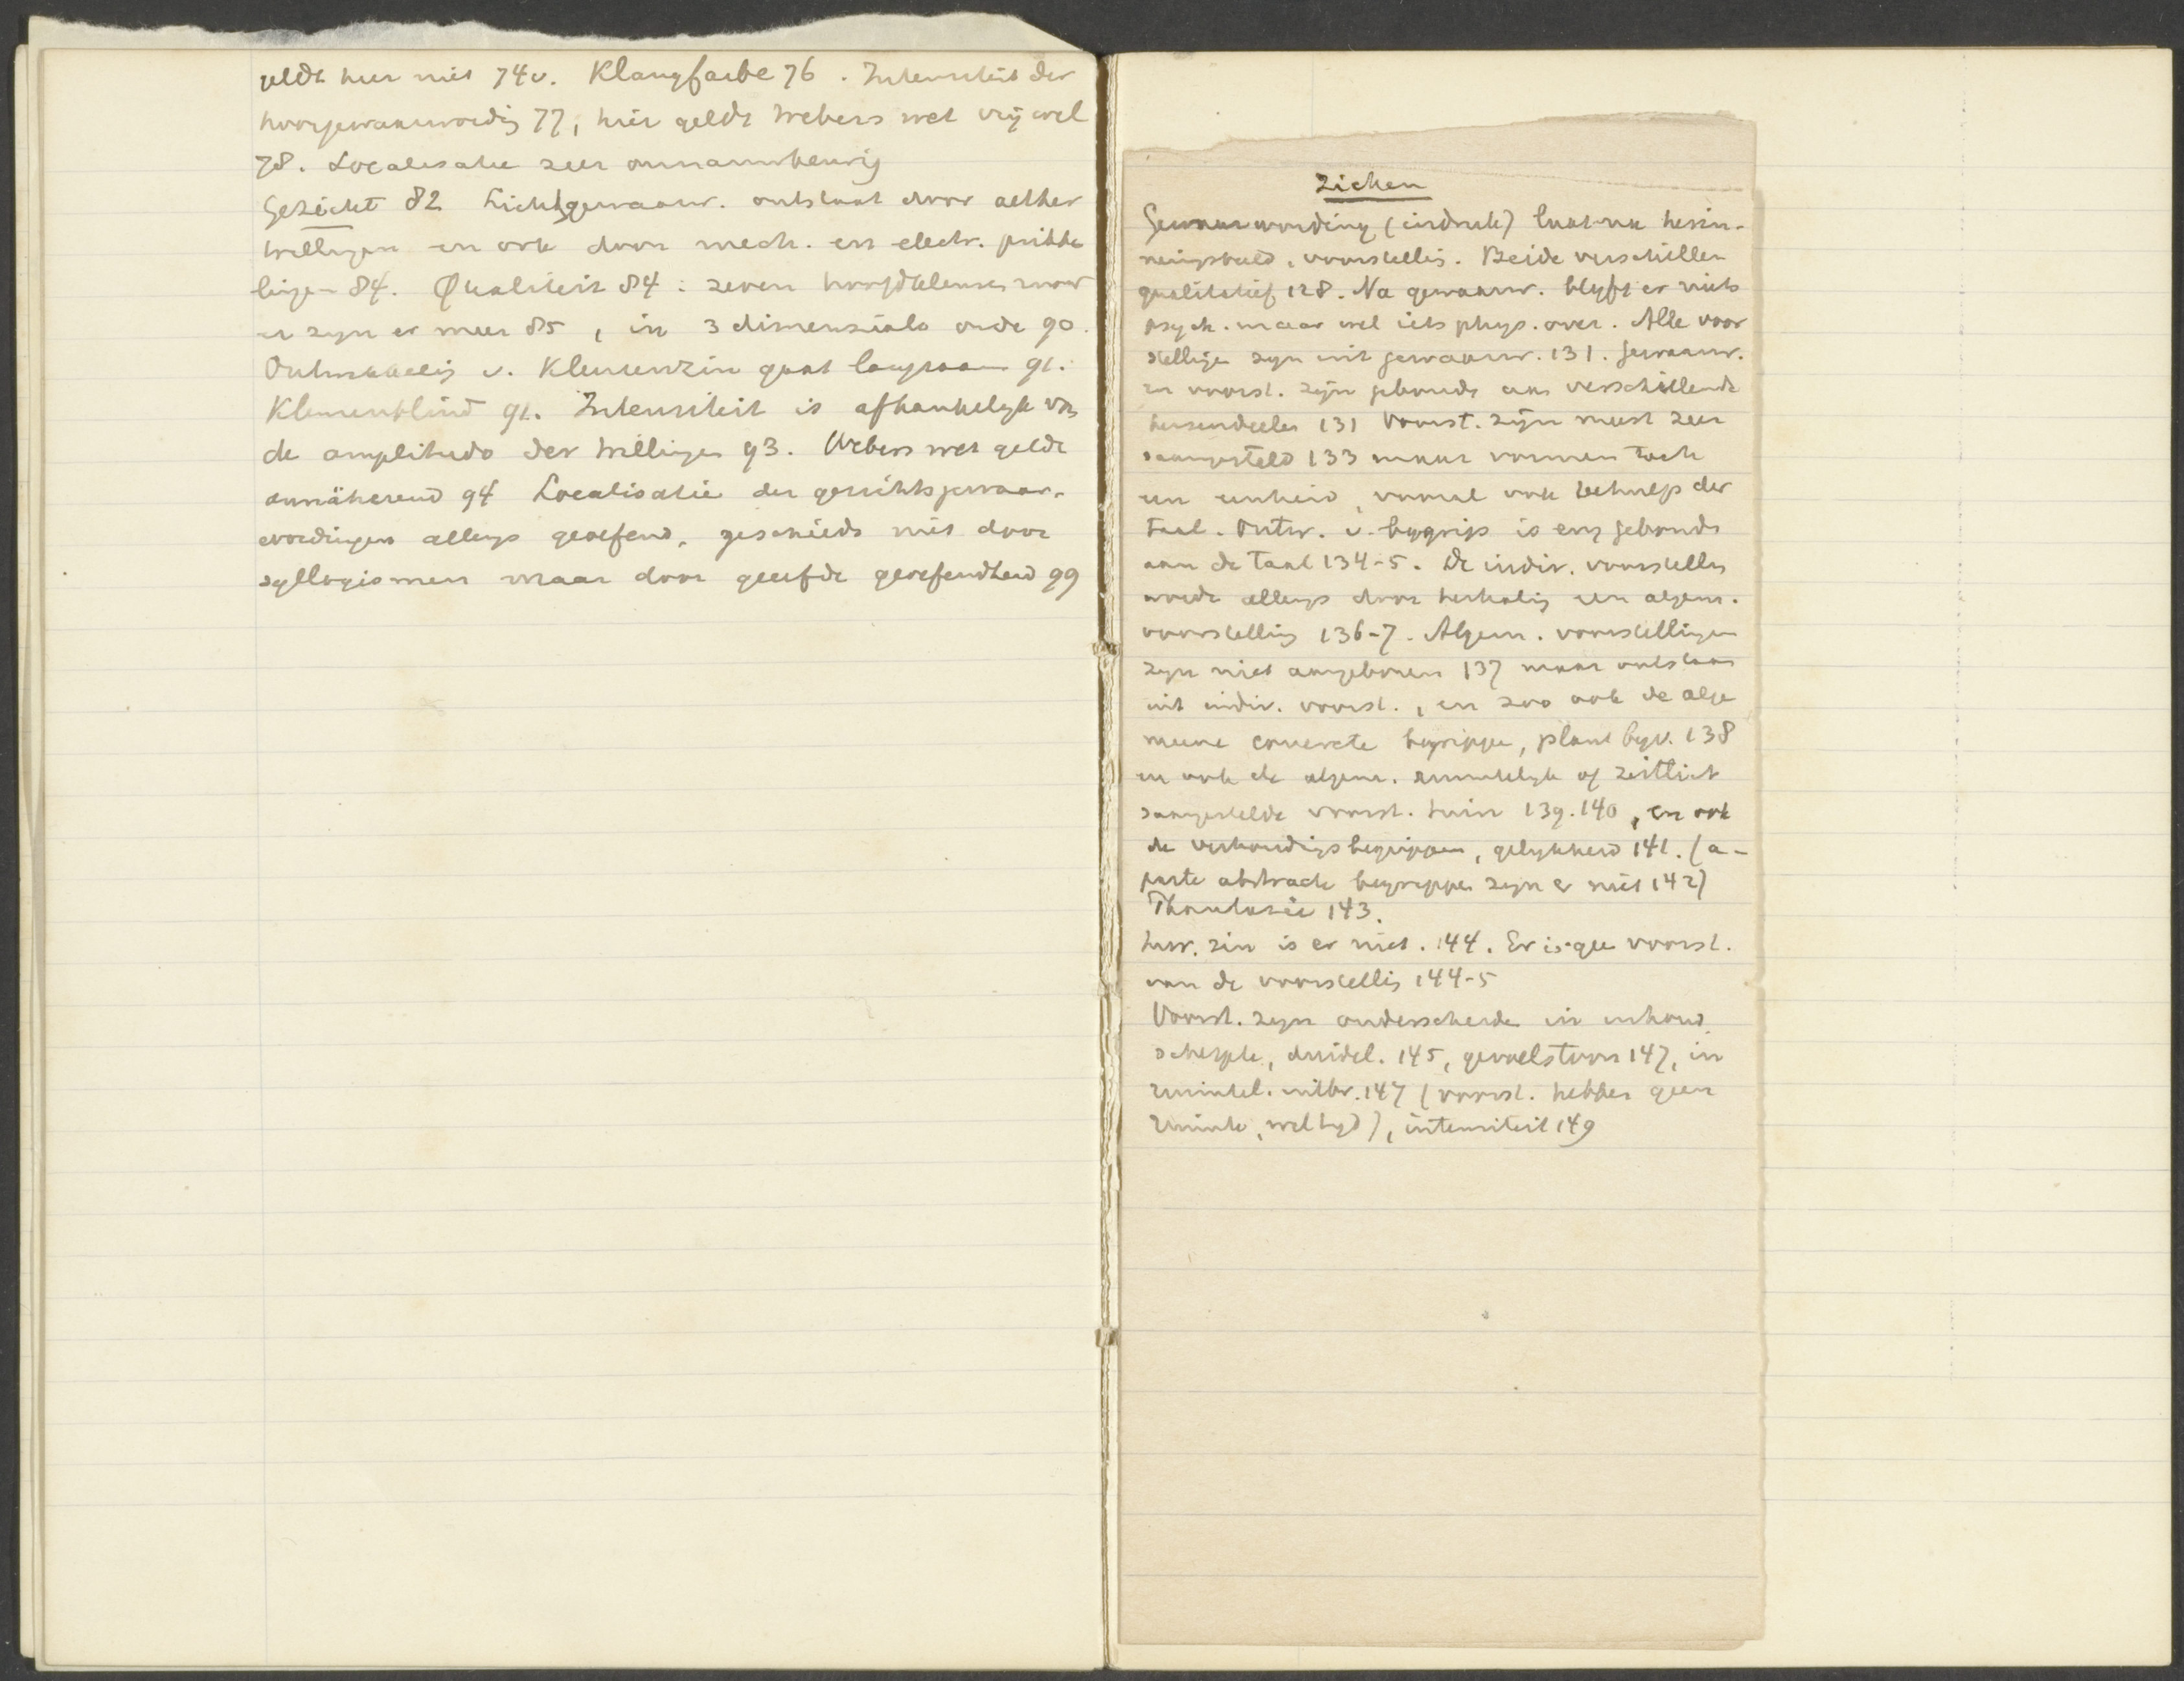 geldt hier niet 74v. Klangfarbe 76. Intensiteit der
hoorgewaarwording 77, hier geldt Webers wet vrij wel
78. Localisatie zeer onnauwkeurig
Gezicht 82 Lichtgewaarw. ontstaat door aether
trillingen en ook door mech. en electr. prikke
lingen 84. Qualiteit 84: zeven hoofdkleuren maar
er zyn er meer 85, in 3 dimensials orde 90.
Ontwikkeling v. Kleurenzin gaat langzaam 91.
Kleurenblind 91. Intensiteit is afhankelyk van
de amplitudo der trillingen 93. Webers wet geldt
annäherend 94 Localisatie der gezichtsgewaar-
wordingen allengs geoefend, geschiedt niet door
syllogismen maar door geerfde geoefendheid 99
Ziehen
Gewaarwording (indruk) laat na herin-
neringsbeeld, voorstelling. Beide verschillen
qualitatief 128. Na gewaarw. blyft er niets
psych. maar wel iets phys. over. Alle voor
stellingen zyn uit gewaarw. 131. Gewaarw.
en voorst. zyn gebonden aan verschillende
hersendeelen 131 Voorst. zijn meest zeer
saamgesteld 133 maar vormen toch
een eenheid, vooral ook behulp der
taal. Ontw. v. begrip is eng gebonden
aan de taal 134-5. De indiv. voorstelling
wordt allengs door herhaling een algem.
voorstelling 136-7. Algem. voorstellingen
zyn niet aangeboren 137 maar ontstaan
uit indiv. voorst., en zoo ook de alge
meene concrete begrippen, plant byv. 138
en ook de algem. ruimtelyk of zeitlich
saamgestelde voorst. tuin 139. 140, en ook
de verhoudingsbegrippen, gelykheid 141. (a-
parte abstracte begrippen zyn er niet 142)
Phantasie 143.
Inw. zin is er niet. 144. Er is gee voorst.
van de voorstelling 144-5
Voorst. zyn onderscheiden in inhoud
scherpte, duidel. 145, gevoelstoon 147, in
ruimtel. uitbr. 147 (voorst. hebben geen
ruimte, wel tyd), intensiteit 149